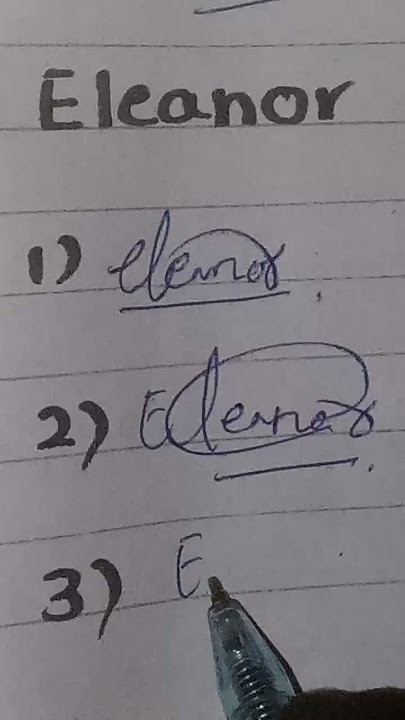 Eleanor
1) Eleanor
2) Eleanor
3) E